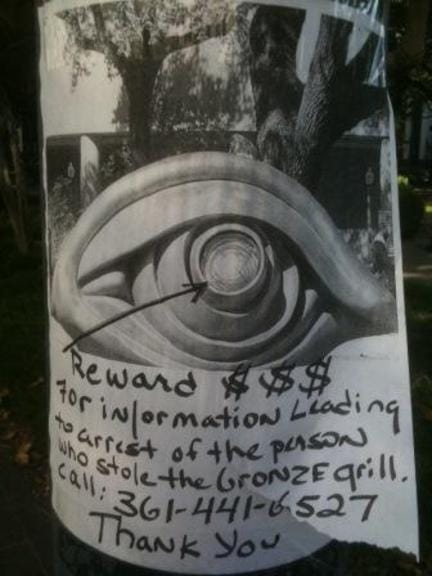 Reward $ $ $
For information Leading
to arrest of the person
who stole the BRONZE grill.
call: 361-441-6527
Thank You